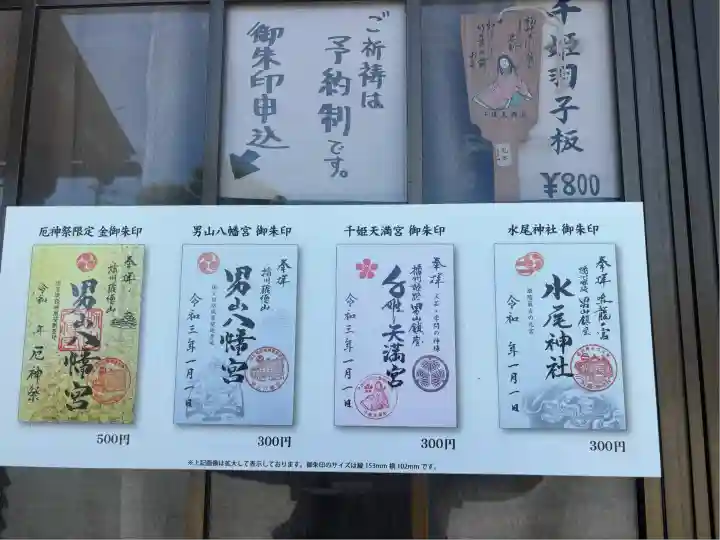 ご祈祷は
予約制です。
御朱印申込
千姫羽子板
¥800
厄神祭限定 金御朱印
奉拝
播州姫路男山
男山八幡宮
令和 年 厄神祭
500円
男山八幡宮 御朱印
奉拝
播州姫路男山
男山八幡宮
令和三年一月一日
300円
千姫天満宮 御朱印
奉拝
播州姫路男山鎮座
千姫天満宮
令和三年一月一日
300円
水尾神社 御朱印
奉拝
水尾神社
令和 年一月一日
300円
※上記画像は拡大して表示しております。御朱印のサイズは縦153mm 横102mmです。